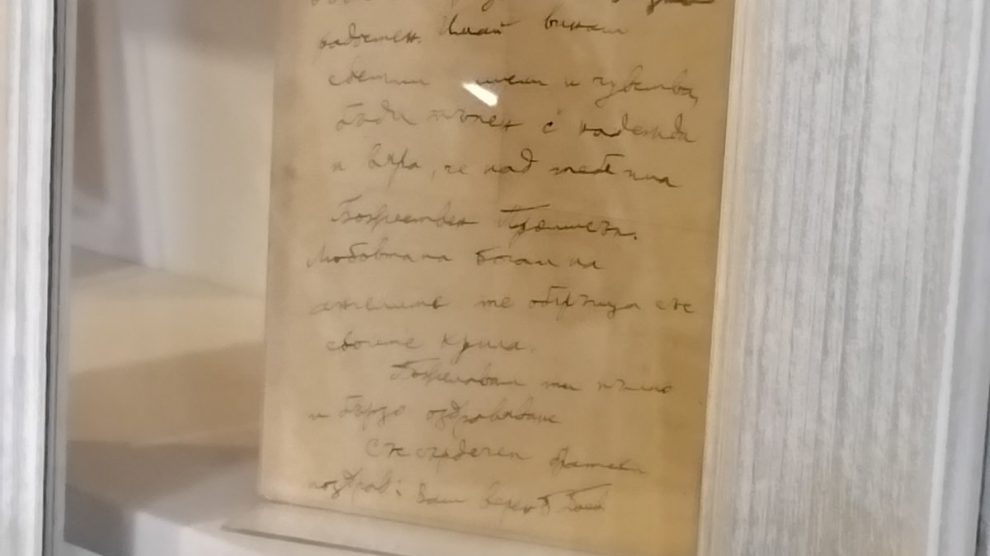 радостен. Имай винаги
светли мисли и чувства,
бъди пълен с надежда
и вяра, че над тебе има
Божествен Промисъл.
Любовта на Бога и на
ангелите те обгръща със
своите крила.
Пожелавам ти пълно
и бързо оздравяване
Със сърдечен братски
поздрав: Ваш верен